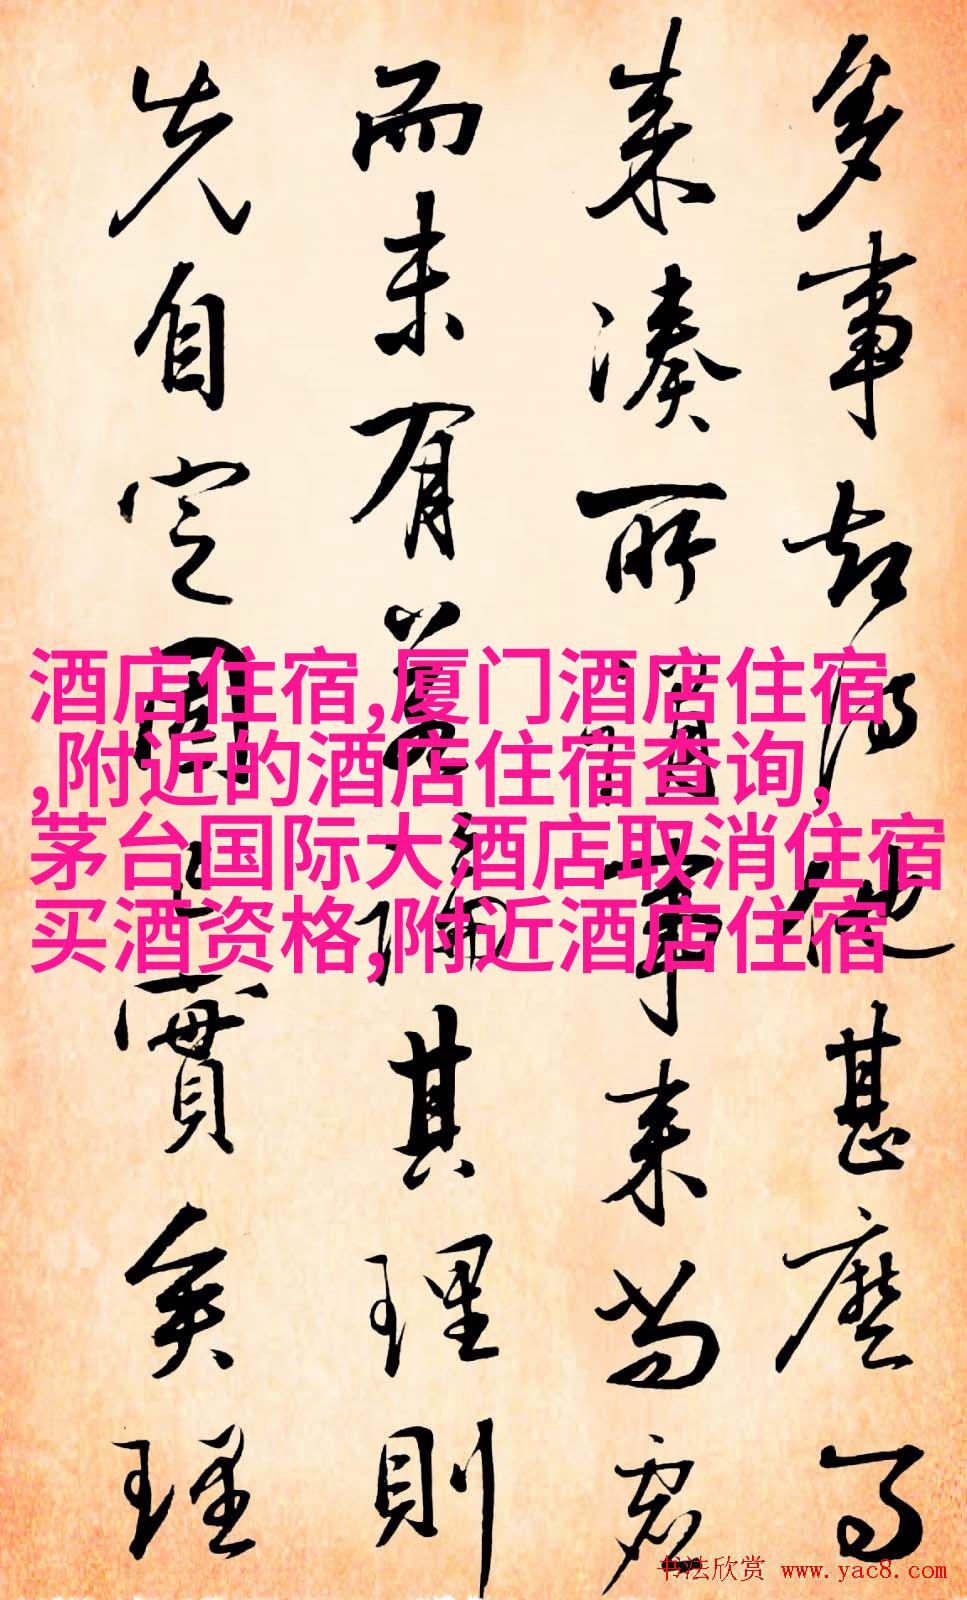 多事却他甚麼事
来湊所謂事来尚虚
而未有若論其理則
先自定固已實矣理
酒店住宿,厦门酒店住宿
,附近的酒店住宿查询,
茅台国际大酒店取消住宿
买酒资格,附近酒店住宿
书法欣赏 www.yac8.com